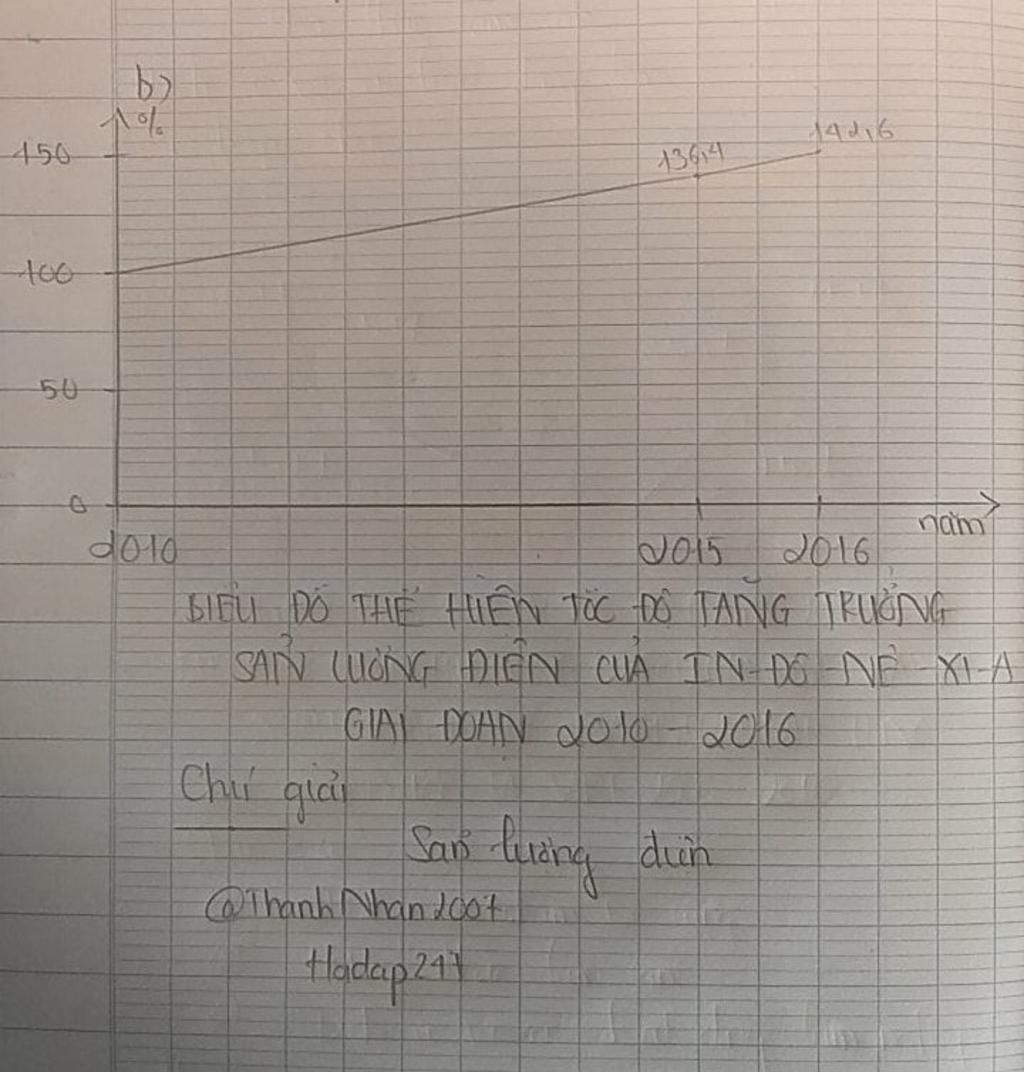 b)
%
142,6
136,4
150
100
50
0
năm
2010 2015 2016
BIỂU ĐỒ THỂ HIỆN TỐC ĐỘ TĂNG TRƯỞNG
SẢN LƯỢNG ĐIỆN CỦA IN-ĐÔ-NÊ-XI-A
GIAI ĐOẠN 2010 - 2016
Chú giải
Sản lượng điện
@ThanhNhan2007
Hqdap247